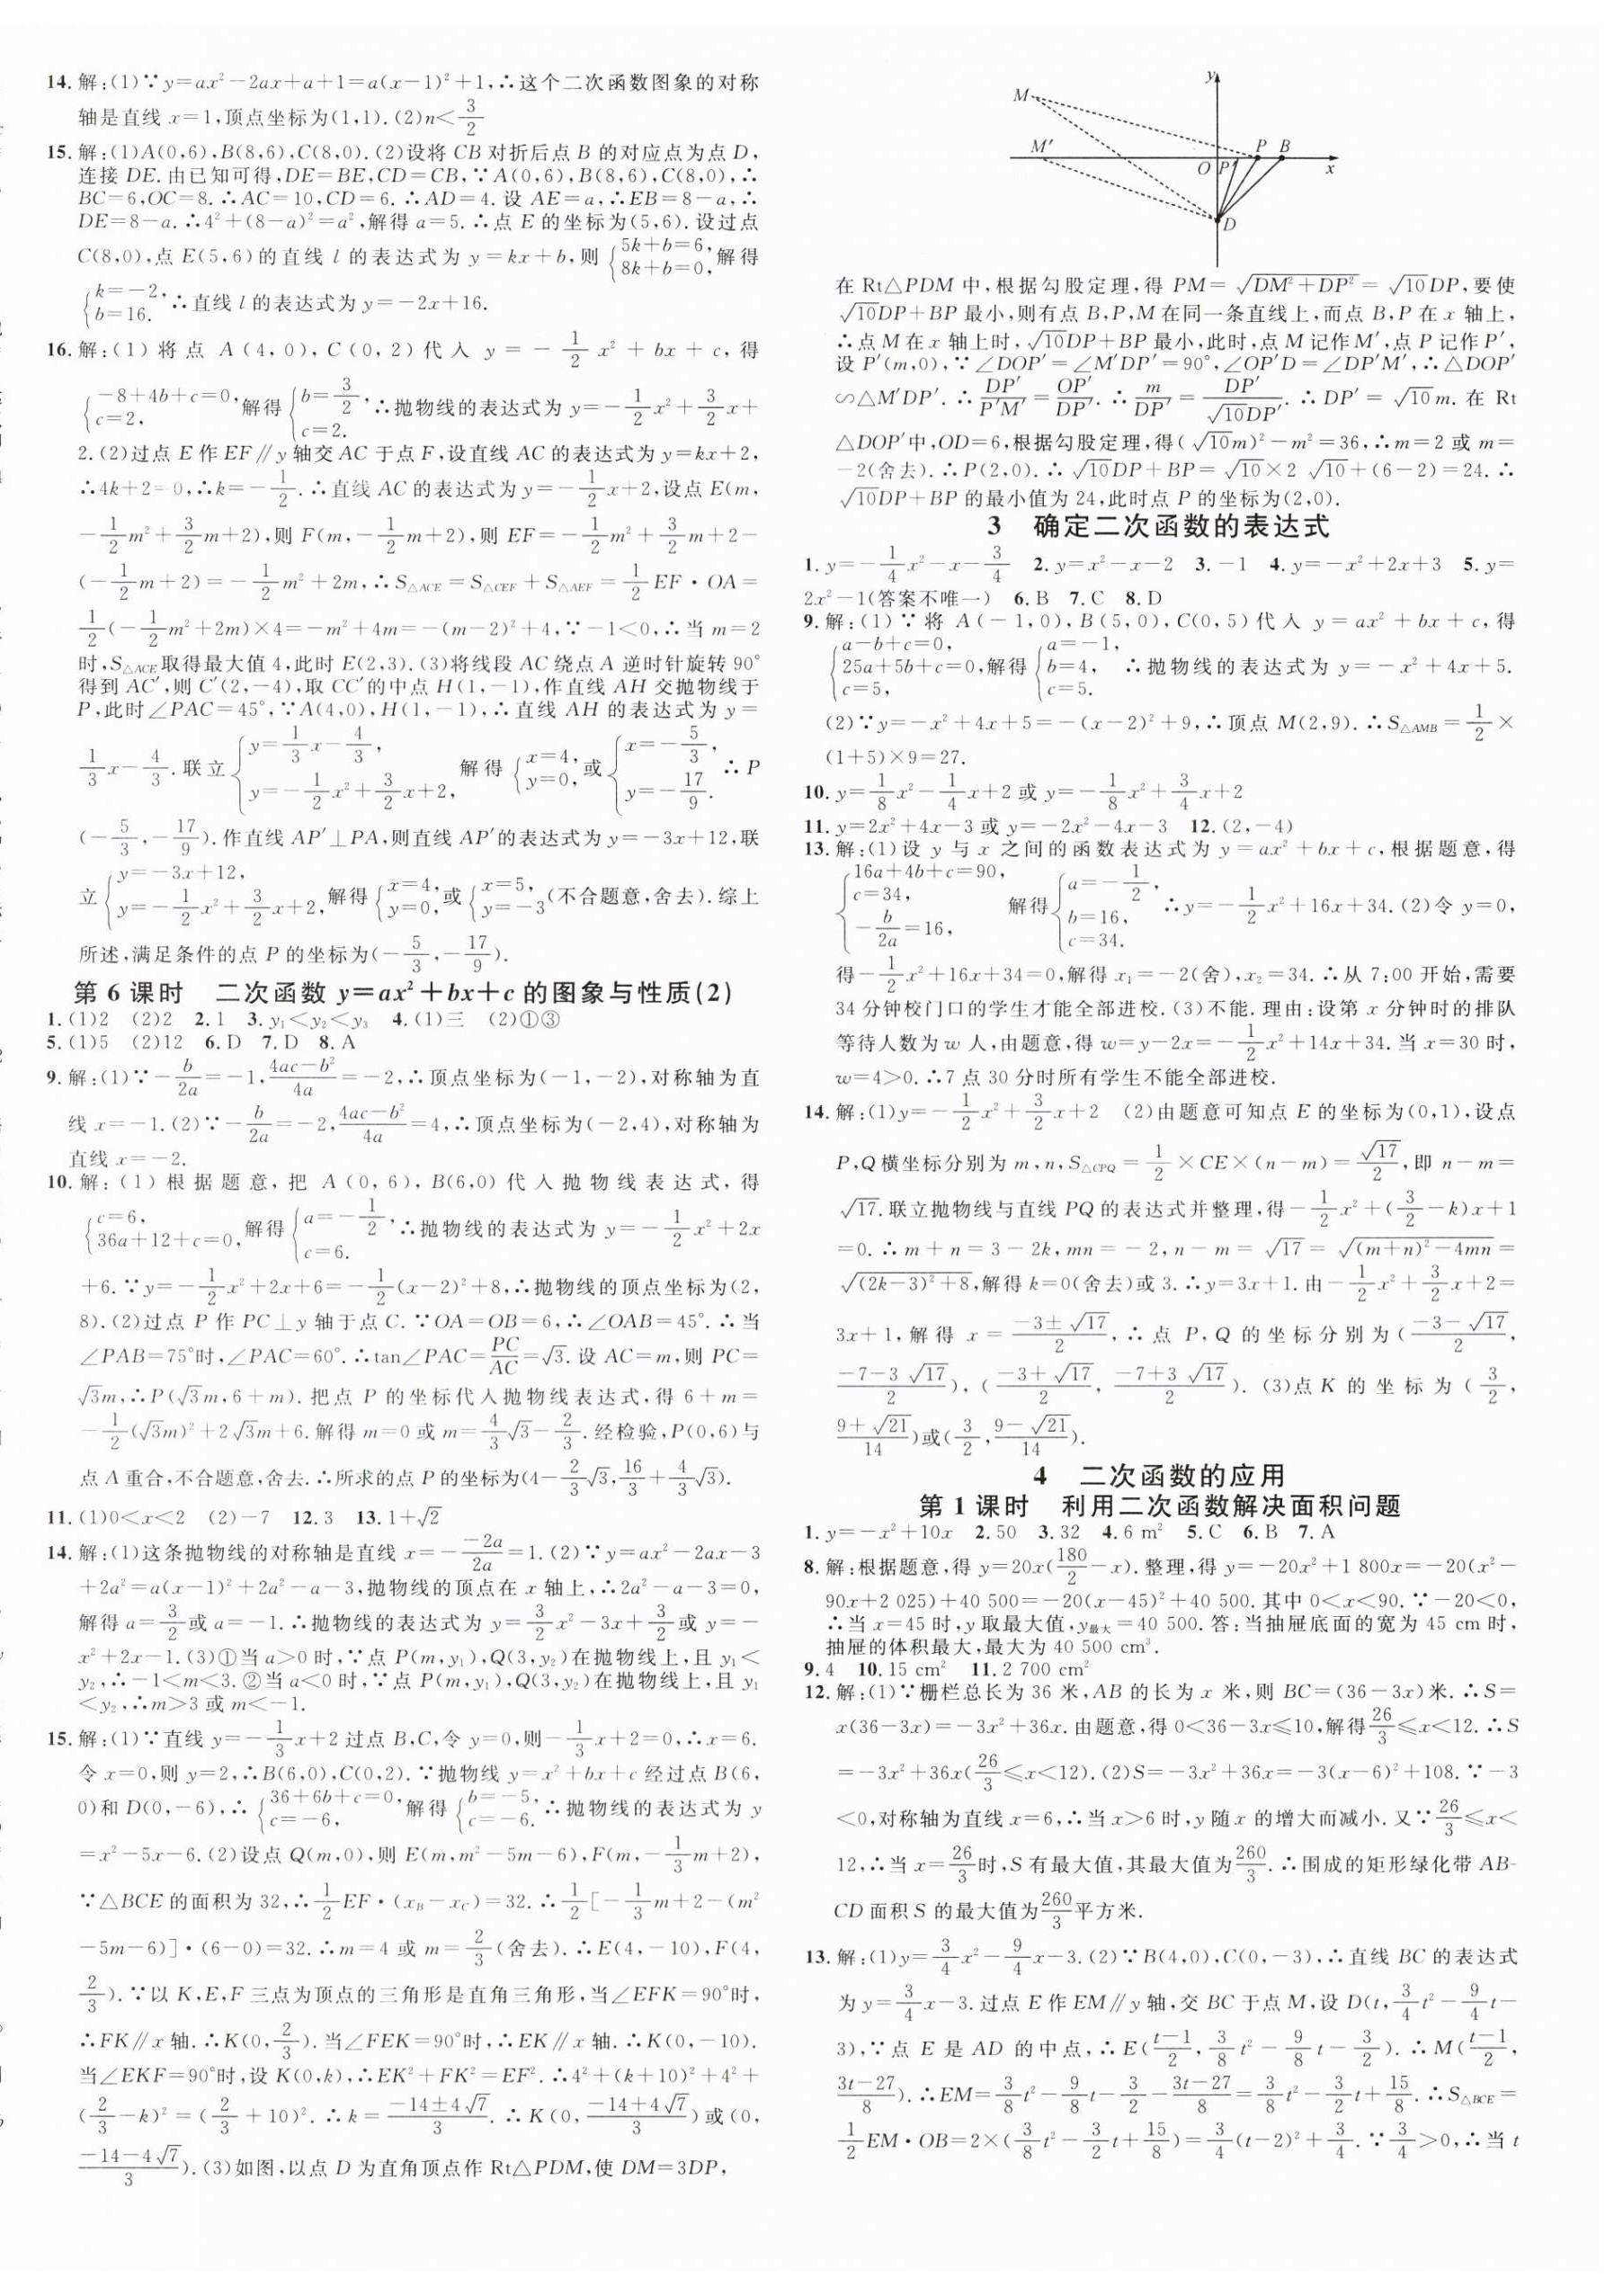 14.解:(1)∵y=ax²-2ax+a+1=a(x-1)²+1,∴这个二次函数图象的对称
轴是直线 x=1,顶点坐标为(1,1).(2)n<3/2
15.解:(1)A(0,6),B(8,6),C(8,0).(2)设将 CB 对折后点 B 的对应点为点 D,
连接 DE.由已知可得,DE=BE,CD=CB,∵A(0,6),B(8,6),C(8,0),∴
BC=6,OC=8.∴AC=10,CD=6.∴AD=4.设 AE=a,∴EB=8-a,∴
DE=8-a.∴4²+(8-a)²=a²,解得 a=5.∴点 E 的坐标为(5,6).设过点
C(8,0),点 E(5,6)的直线 l 的表达式为 y=kx+b,则{5k+b=6, 8k+b=0,解得
{k=-2, b=16.∴直线 l 的表达式为 y=-2x+16.
16.解:(1)将点 A(4,0),C(0,2)代入 y=-1/2x²+bx+c,得
{-8+4b+c=0, c=2,解得{b=3/2, c=2.∴抛物线的表达式为 y=-1/2x²+3/2x+
2.(2)过点 E 作 EF∥y 轴交 AC 于点 F,设直线 AC 的表达式为 y=kx+2,
∴4k+2=0,∴k=-1/2.∴直线 AC 的表达式为 y=-1/2x+2,设点 E(m,
-1/2m²+3/2m+2),则 F(m,-1/2m+2),则 EF=-1/2m²+3/2m+2-
(-1/2m+2)=-1/2m²+2m,∴S△ACE=S△CEF+S△AEF=1/2EF·OA=
1/2(-1/2m²+2m)×4=-m²+4m=-(m-2)²+4,∵-1<0,∴当 m=2
时,S△ACE取得最大值 4,此时 E(2,3).(3)将线段 AC 绕点 A 逆时针旋转 90°
得到 AC′,则 C′(2,-4),取 CC′的中点 H(1,-1),作直线 AH 交抛物线于
P,此时∠PAC=45°,∵A(4,0),H(1,-1),∴直线 AH 的表达式为 y=
1/3x-4/3.联立{y=1/3x-4/3, y=-1/2x²+3/2x+2,解得{x=4, y=0,或{x=-5/3, y=-17/9.∴P
(-5/3,-17/9).作直线 AP′⊥PA,则直线 AP′的表达式为 y=-3x+12,联
立{y=-3x+12, y=-1/2x²+3/2x+2,解得{x=4, y=0,或{x=5, y=-3(不合题意,舍去).综上
所述,满足条件的点 P 的坐标为(-5/3,-17/9).
第 6 课时 二次函数 y=ax²+bx+c 的图象与性质(2)
1.(1)2 (2)2 2.1 3.y₁<y₂<y₃ 4.(1)三 (2)①③
5.(1)5 (2)12 6.D 7.D 8.A
9.解:(1)∵-b/2a=-1,(4ac-b²)/4a=-2,∴顶点坐标为(-1,-2),对称轴为直
线 x=-1.(2)∵-b/2a=-2,(4ac-b²)/4a=4,∴顶点坐标为(-2,4),对称轴为
直线 x=-2.
10.解:(1)根据题意,把 A(0,6),B(6,0)代入抛物线表达式,得
{c=6, 36a+12+c=0,解得{a=-1/2, c=6.∴抛物线的表达式为 y=-1/2x²+2x
+6.∵y=-1/2x²+2x+6=-1/2(x-2)²+8,∴抛物线的顶点坐标为(2,
8).(2)过点 P 作 PC⊥y 轴于点 C.∵OA=OB=6,∴∠OAB=45°.∴当
∠PAB=75°时,∠PAC=60°.∴tan∠PAC=PC/AC=√3.设 AC=m,则 PC=
√3m,∴P(√3m,6+m).把点 P 的坐标代入抛物线表达式,得 6+m=
-1/2(√3m)²+2√3m+6.解得 m=0 或 m=4/3√3-2/3.经检验,P(0,6)与
点 A 重合,不合题意,舍去.∴所求的点 P 的坐标为(4-2/3√3,16/3+4/3√3).
11.(1)0<x<2 (2)-7 12.3 13.1+√2
14.解:(1)这条抛物线的对称轴是直线 x=-(-2a)/2a=1.(2)∵y=ax²-2ax-3
+2a²=a(x-1)²+2a²-a-3,抛物线的顶点在 x 轴上,∴2a²-a-3=0,
解得 a=3/2或 a=-1.∴抛物线的表达式为 y=3/2x²-3x+3/2或 y=-
x²+2x-1.(3)①当 a>0 时,∵点 P(m,y₁),Q(3,y₂)在抛物线上,且 y₁<
y₂,∴-1<m<3.②当 a<0 时,∵点 P(m,y₁),Q(3,y₂)在抛物线上,且 y₁
<y₂,∴m>3 或 m<-1.
15.解:(1)∵直线 y=-1/3x+2 过点 B,C,令 y=0,则-1/3x+2=0,∴x=6.
令 x=0,则 y=2,∴B(6,0),C(0,2).∵抛物线 y=x²+bx+c 经过点 B(6,
0)和 D(0,-6),∴{36+6b+c=0, c=-6,解得{b=-5, c=-6.∴抛物线的表达式为 y
=x²-5x-6.(2)设点 Q(m,0),则 E(m,m²-5m-6),F(m,-1/3m+2),
∵△BCE 的面积为 32,∴1/2EF·(x_B-x_C)=32.∴1/2[-1/3m+2-(m²
-5m-6)]·(6-0)=32.∴m=4 或 m=2/3(舍去).∴E(4,-10),F(4,
2/3).∵以 K,E,F 三点为顶点的三角形是直角三角形,当∠EFK=90°时,
∴FK∥x 轴.∴K(0,2/3).当∠FEK=90°时,∴EK∥x 轴.∴K(0,-10).
当∠EKF=90°时,设 K(0,k),∴EK²+FK²=EF².∴4²+(k+10)²+4²+
(2/3-k)²=(2/3+10)².∴k=(-14±4√7)/3.∴K(0,(-14+4√7)/3)或(0,
(-14-4√7)/3).(3)如图,以点 D 为直角顶点作 Rt△PDM,使 DM=3DP,
y
M
M′ P B
O P′ x
D
在 Rt△PDM 中,根据勾股定理,得 PM=√(DM²+DP²)=√10DP,要使
√10DP+BP 最小,则有点 B,P,M 在同一条直线上,而点 B,P 在 x 轴上,
∴点 M 在 x 轴上时,√10DP+BP 最小,此时,点 M 记作 M′,点 P 记作 P′,
设 P′(m,0),∵∠DOP′=∠M′DP′=90°,∠OP′D=∠DP′M′,∴△DOP′
∽△M′DP′.∴DP′/P′M′=OP′/DP′.∴m/DP′=DP′/√10DP′.∴DP′=√10m.在 Rt
△DOP′中,OD=6,根据勾股定理,得(√10m)²-m²=36,∴m=2 或 m=
-2(舍去).∴P(2,0).∴√10DP+BP=√10×2√10+(6-2)=24.∴
√10DP+BP 的最小值为 24,此时点 P 的坐标为(2,0).
3 确定二次函数的表达式
1.y=-1/4x²-x-3/4 2.y=x²-x-2 3.-1 4.y=-x²+2x+3 5.y=
2x²-1(答案不唯一) 6.B 7.C 8.D
9.解:(1)∵将 A(-1,0),B(5,0),C(0,5)代入 y=ax²+bx+c,得
{a-b+c=0, 25a+5b+c=0, c=5,解得{a=-1, b=4, c=5.∴抛物线的表达式为 y=-x²+4x+5.
(2)∵y=-x²+4x+5=-(x-2)²+9,∴顶点 M(2,9).∴S△AMB=1/2×
(1+5)×9=27.
10.y=1/8x²-1/4x+2 或 y=-1/8x²+3/4x+2
11.y=2x²+4x-3 或 y=-2x²-4x-3 12.(2,-4)
13.解:(1)设 y 与 x 之间的函数表达式为 y=ax²+bx+c,根据题意,得
{16a+4b+c=90, c=34, -b/2a=16,解得{a=-1/2, b=16, c=34.∴y=-1/2x²+16x+34.(2)令 y=0,
得-1/2x²+16x+34=0,解得 x₁=-2(舍),x₂=34.∴从 7:00 开始,需要
34 分钟校门口的学生才能全部进校.(3)不能.理由:设第 x 分钟时的排队
等待人数为 w 人,由题意,得 w=y-2x=-1/2x²+14x+34.当 x=30 时,
w=4>0.∴7 点 30 分时所有学生不能全部进校.
14.解:(1)y=-1/2x²+3/2x+2 (2)由题意可知点 E 的坐标为(0,1),设点
P,Q 横坐标分别为 m,n,S△CPQ=1/2×CE×(n-m)=√17/2,即 n-m=
√17.联立抛物线与直线 PQ 的表达式并整理,得-1/2x²+(3/2-k)x+1
=0.∴m+n=3-2k,mn=-2,n-m=√17=√((m+n)²-4mn)=
√((2k-3)²+8),解得 k=0(舍去)或 3.∴y=3x+1.由-1/2x²+3/2x+2=
3x+1,解得 x=(-3±√17)/2,∴点 P,Q 的坐标分别为((-3-√17)/2,
(-7-3√17)/2),((-3+√17)/2,(-7+3√17)/2).(3)点 K 的坐标为(3/2,
(9+√21)/14)或(3/2,(9-√21)/14).
4 二次函数的应用
第 1 课时 利用二次函数解决面积问题
1.y=-x²+10x 2.50 3.32 4.6 m² 5.C 6.B 7.A
8.解:根据题意,得 y=20x(180/2-x).整理,得 y=-20x²+1 800x=-20(x²-
90x+2 025)+40 500=-20(x-45)²+40 500.其中 0<x<90.∵-20<0,
∴当 x=45 时,y 取最大值,y最大=40 500.答:当抽屉底面的宽为 45 cm 时,
抽屉的体积最大,最大为 40 500 cm³.
9.4 10.15 cm² 11.2 700 cm²
12.解:(1)∵栅栏总长为 36 米,AB 的长为 x 米,则 BC=(36-3x)米.∴S=
x(36-3x)=-3x²+36x.由题意,得 0<36-3x≤10,解得26/3≤x<12.∴S
=-3x²+36x(26/3≤x<12).(2)S=-3x²+36x=-3(x-6)²+108.∵-3
<0,对称轴为直线 x=6,∴当 x>6 时,y 随 x 的增大而减小.又∵26/3≤x<
12,∴当 x=26/3时,S 有最大值,其最大值为260/3.∴围成的矩形绿化带 AB-
CD 面积 S 的最大值为260/3平方米.
13.解:(1)y=3/4x²-9/4x-3.(2)∵B(4,0),C(0,-3),∴直线 BC 的表达式
为 y=3/4x-3.过点 E 作 EM∥y 轴,交 BC 于点 M,设 D(t,3/4t²-9/4t-
3),∵点 E 是 AD 的中点,∴E((t-1)/2,3/8t²-9/8t-3/2).∴M((t-1)/2,
(3t-27)/8).∴EM=3/8t²-9/8t-3/2-(3t-27)/8=3/8t²-3/2t+15/8.∴S△BCE=
1/2EM·OB=2×(3/8t²-3/2t+15/8)=3/4(t-2)²+3/4.∵3/4>0,∴当 t